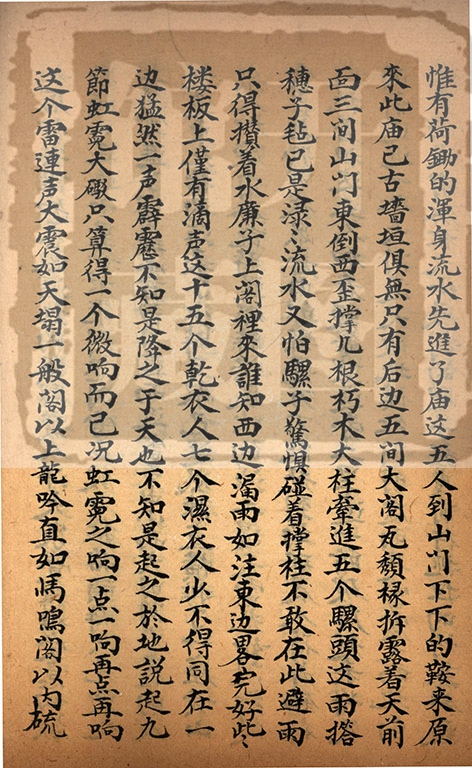 惟有荷鋤的渾身流水先進了庙这五人到山门下下的鞍来原
來此庙已古墻垣俱無只有后边五间大阁瓦頹椽拆露着天前
面三间山门東倒西歪撑几根朽木大柱牽進五个騾頭这雨搭
穗子毡已是渌〻流水又怕騾子驚惧碰着撑柱不敢在此避雨
只得攅着水廉子上阁裡來誰知西边漏雨如注東边畧完好些〻
楼板上僅有滴声这十五个乾衣人七个濕衣人少不得同在一
边猛然一声霹靂不知是降之于天也不知是起之於地説起九
節虹霓大礮只算得一个微响而已况虹霓之响一点一响再点再响
这个雷連声大震如天塌一般阁以上龍吟直如馬鳴阁以内硫